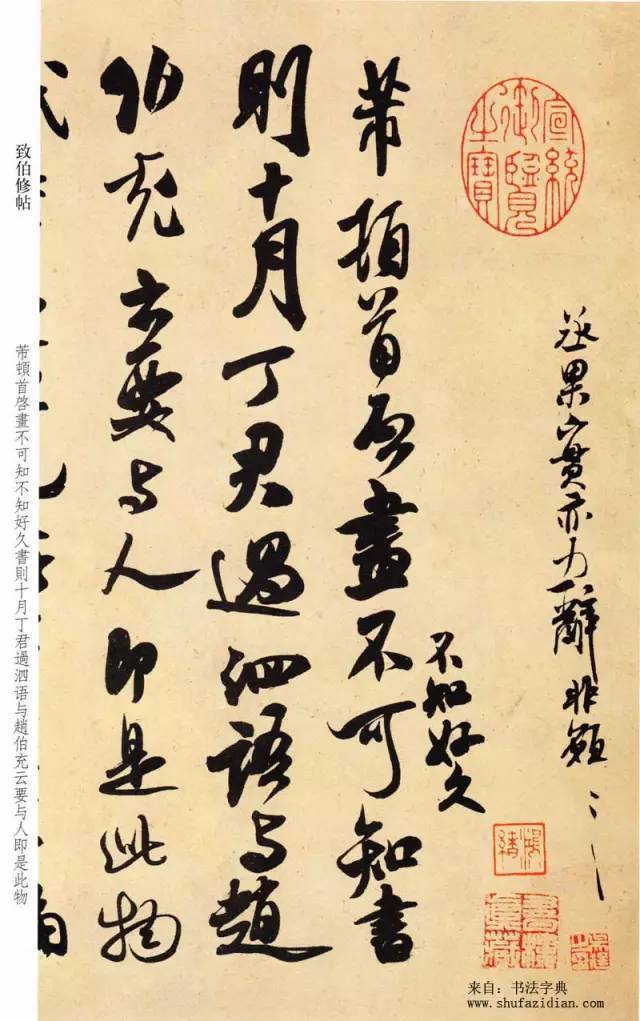 宣統御覽之寶
丞果實亦力辭 非願
芾頓首啓畫不可知書
不知好久
則十月丁君過泗語与趙
伯充云要与人即是此物
致伯修帖
芾頓首啓畫不可知不知好久書則十月丁君過泗语与趙伯充云要与人即是此物
来自：书法字典
www.shufazidian.com